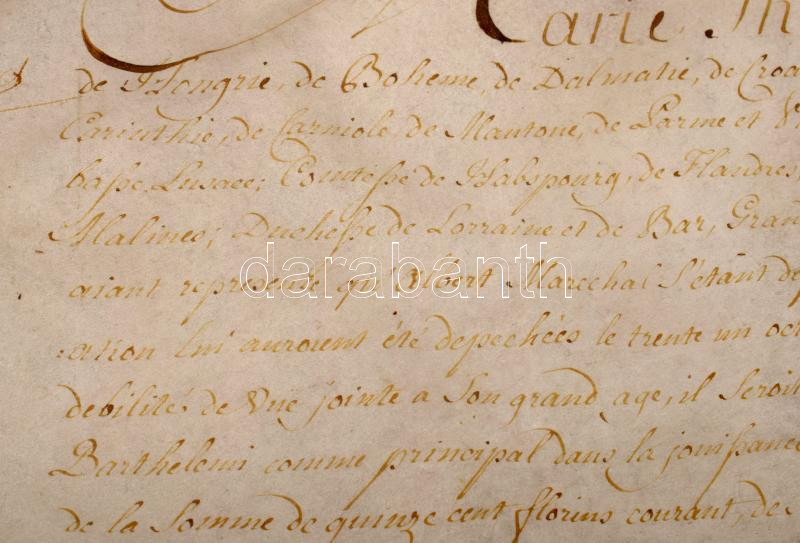 Marie Th
de Hongrie, de Boheme, de Dalmatie, de Croa
Carinthie, de Carniole, de Mantoue, de Parme et
basse Lusace; Comtesse de Habspourg, de Flandres,
Malines; Duchesse de Lorraine et de Bar, Gran
darabanth
aiant representé qu' Albert Marechal s'étant de
ation lui auroient été depechées le trente un oct
debilité de Vuë jointe a Son grand age, il Seroit
Barthelemi comme principal dans la jouissance
de la Somme de quinze cent florins courant, de